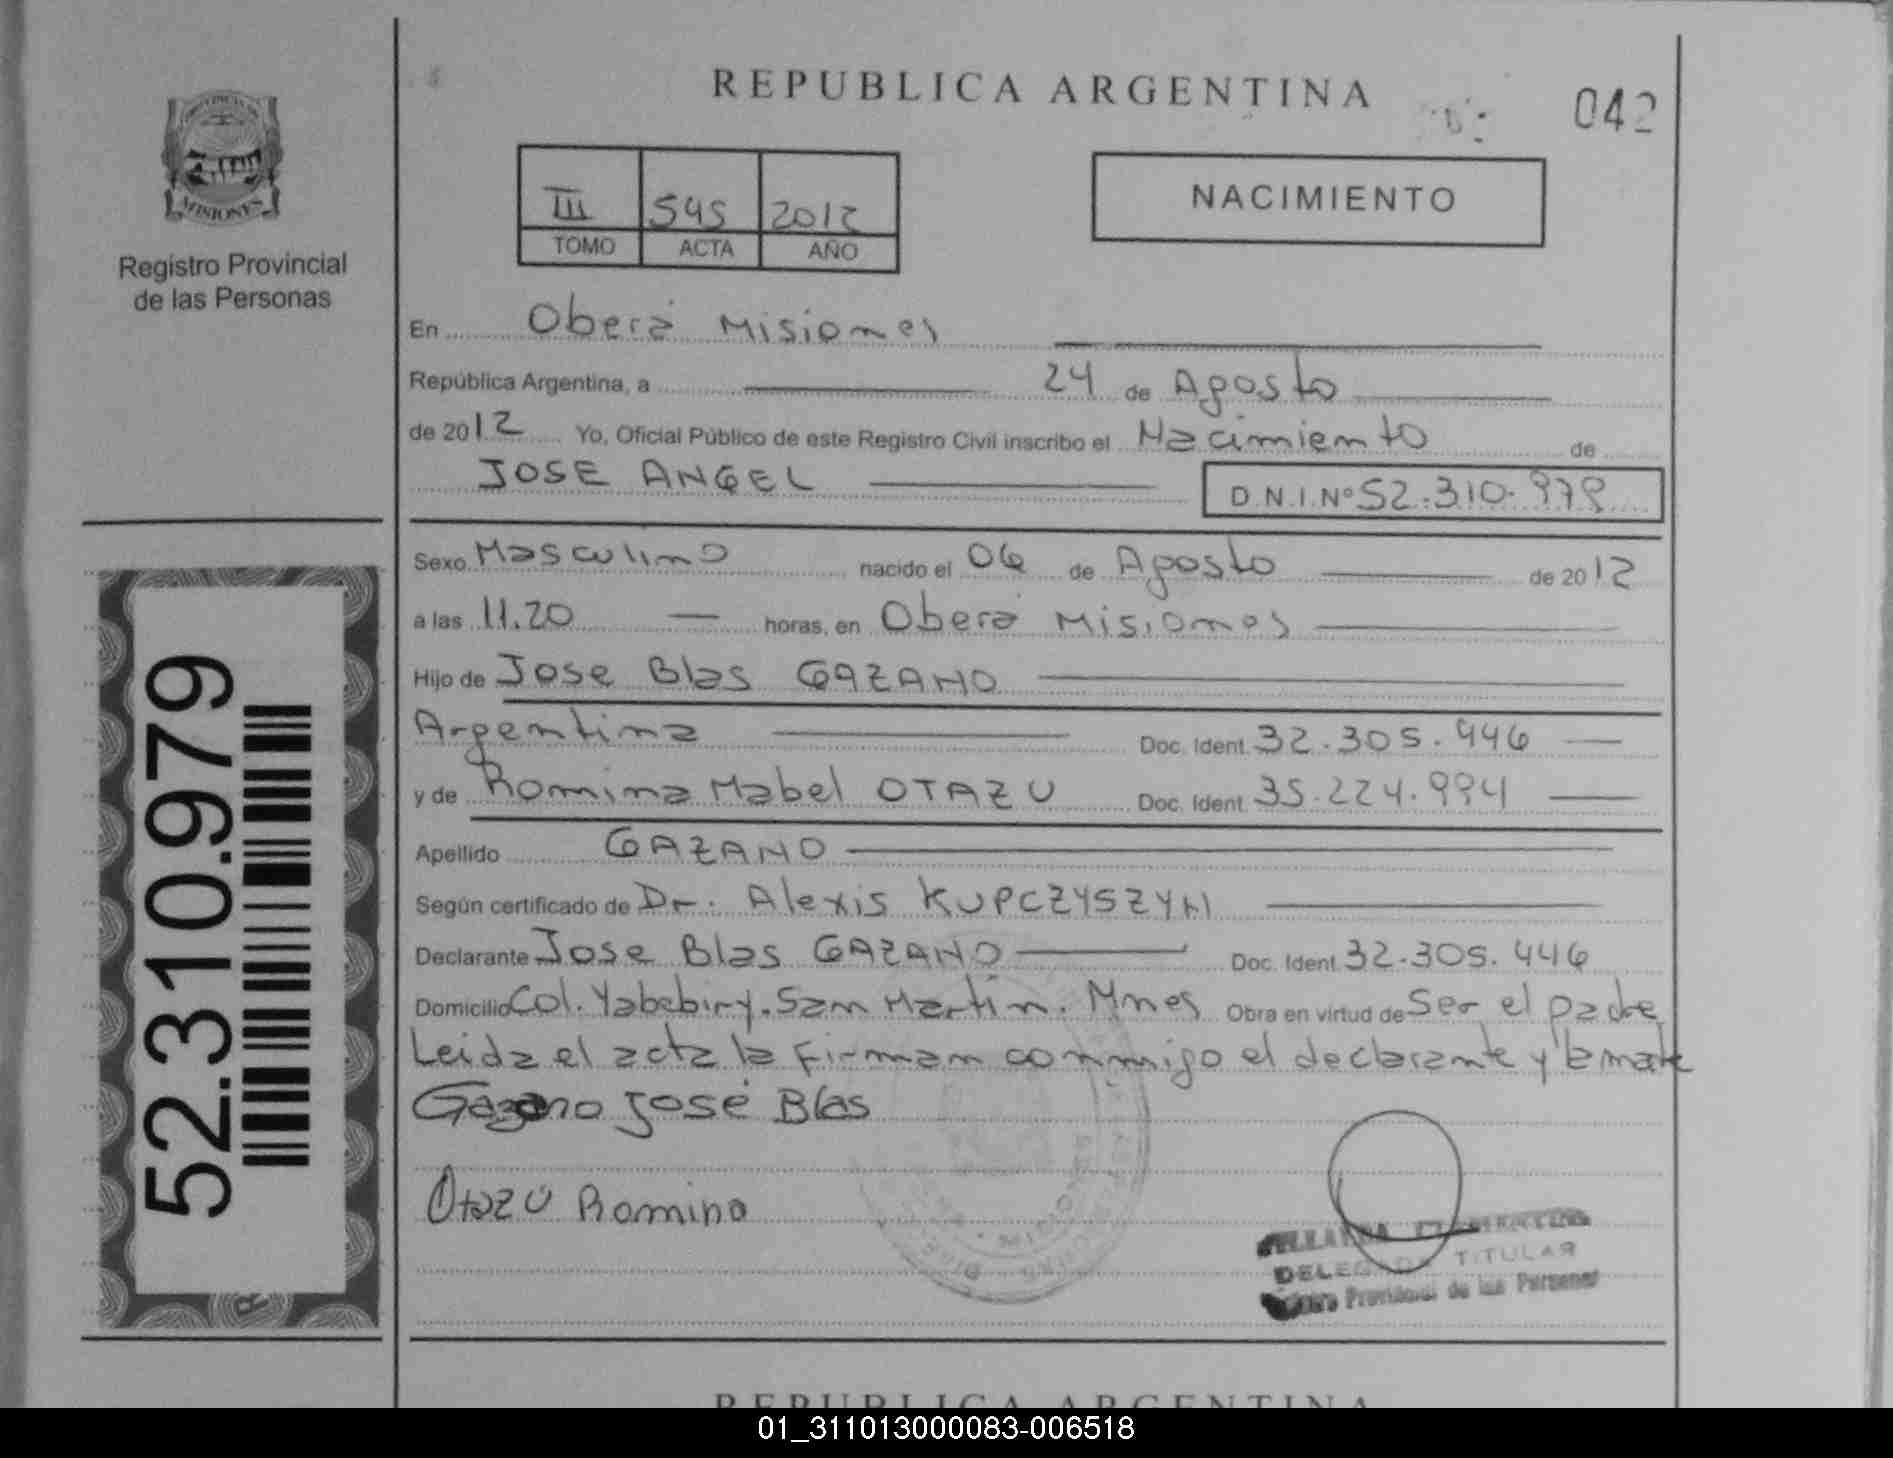 REPUBLICA ARGENTINA
042
MISIONES
Registro Provincial
de las Personas
III 545 2012
TOMO ACTA AÑO
NACIMIENTO
En Oberá Misiones
República Argentina, a 24 de Agosto
de 2012 Yo, Oficial Público de este Registro Civil inscribo el Nacimiento de
JOSE ANGEL D.N.I.Nº 52.310.979
Sexo Masculino nacido el 06 de Agosto de 2012
a las 11.20 horas, en Oberá Misiones
Hijo de Jose Blas GAZANO
Argentina Doc. Ident. 32.305.446
y de Romina Mabel OTAZU Doc. Ident. 35.224.994
Apellido GAZANO
Según certificado de Dr. Alexis KUPCZYSZYN
Declarante Jose Blas GAZANO Doc. Ident. 32.305.446
Domicilio Col. Yabebiry. San Martín. Mnes Obra en virtud de Ser el padre
Leida el acta la Firman conmigo el declarante y la madre
Gazano José Blas
Otazú Romina
DELEGADO TITULAR
Provincial de las Personas
52.310.979
REPUBLICA ARGENTINA
01_311013000083-006518